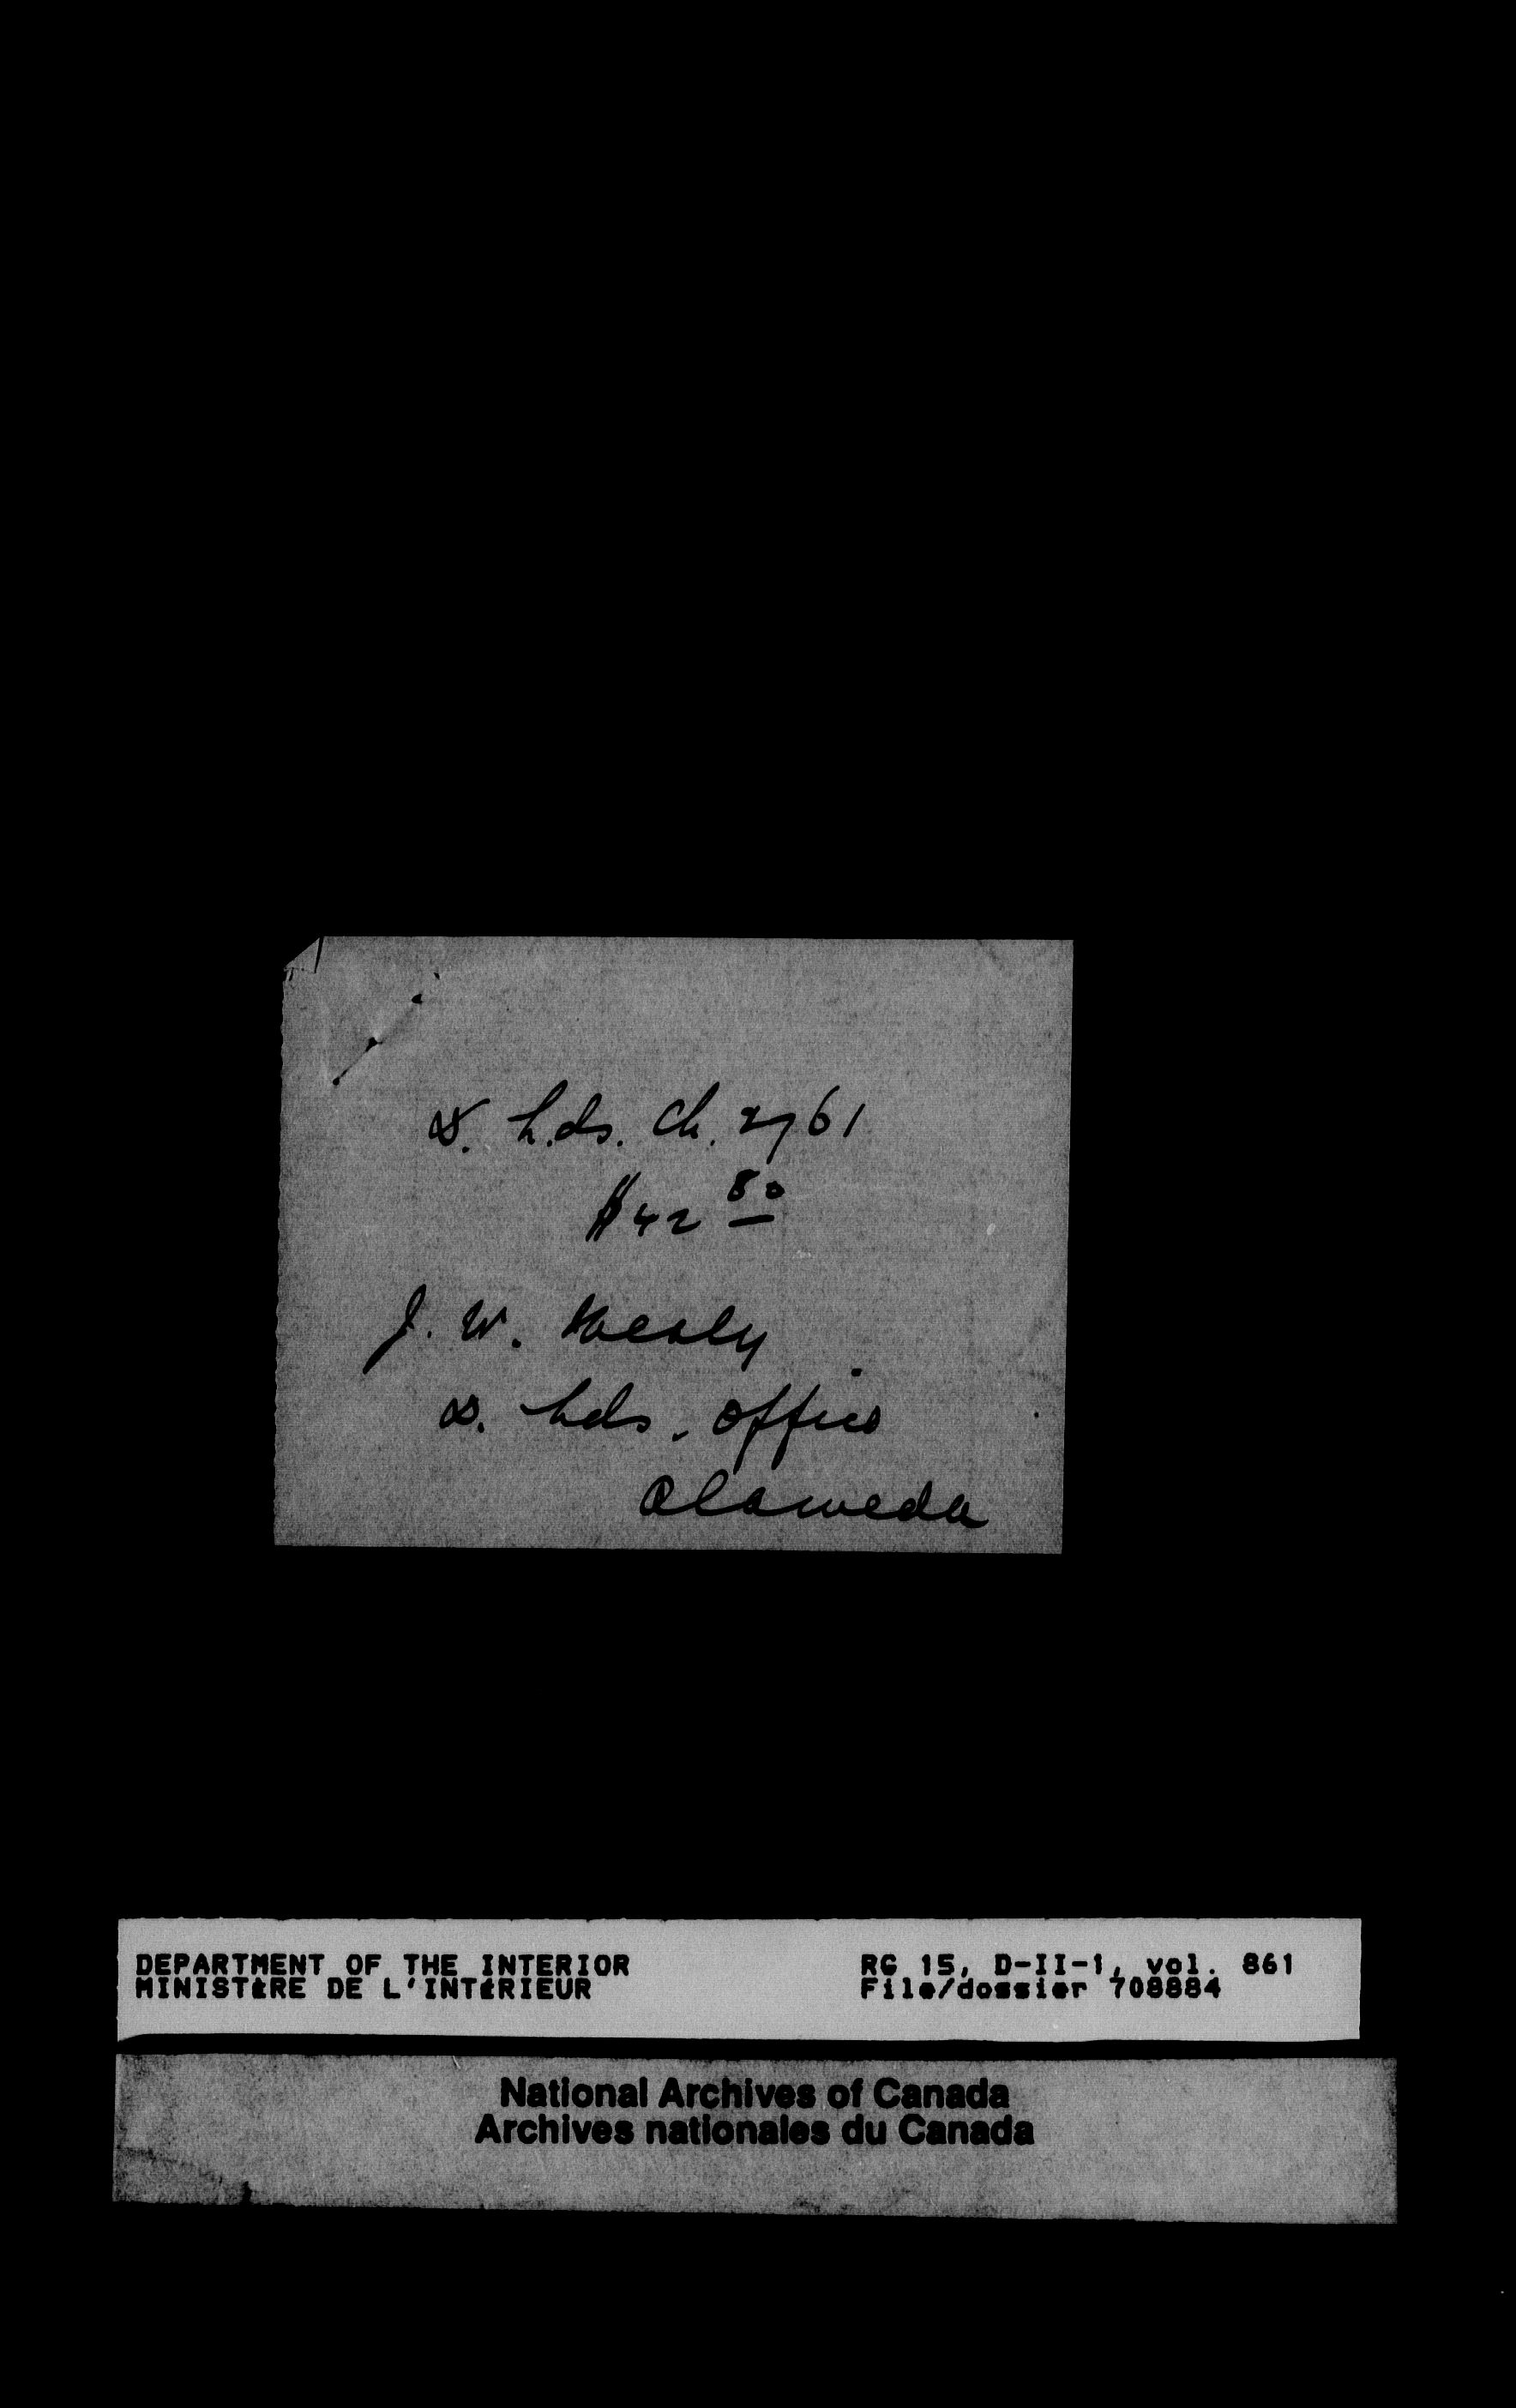 D. Lds. Ch. 2761
$42 80
J. W.
D. Lds. office
Alameda
DEPARTMENT OF THE INTERIOR RG 15, D-II-1, vol. 861
MINISTÈRE DE L'INTÉRIEUR File/dossier 708884
National Archives of Canada
Archives nationales du Canada